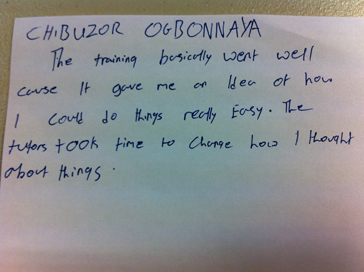 CHIBUZOR OGBONNAYA
The training basically went well
cause It gave me an Idea of how
I could do things really Easy. The
tutors took time to change how I thought
about things.